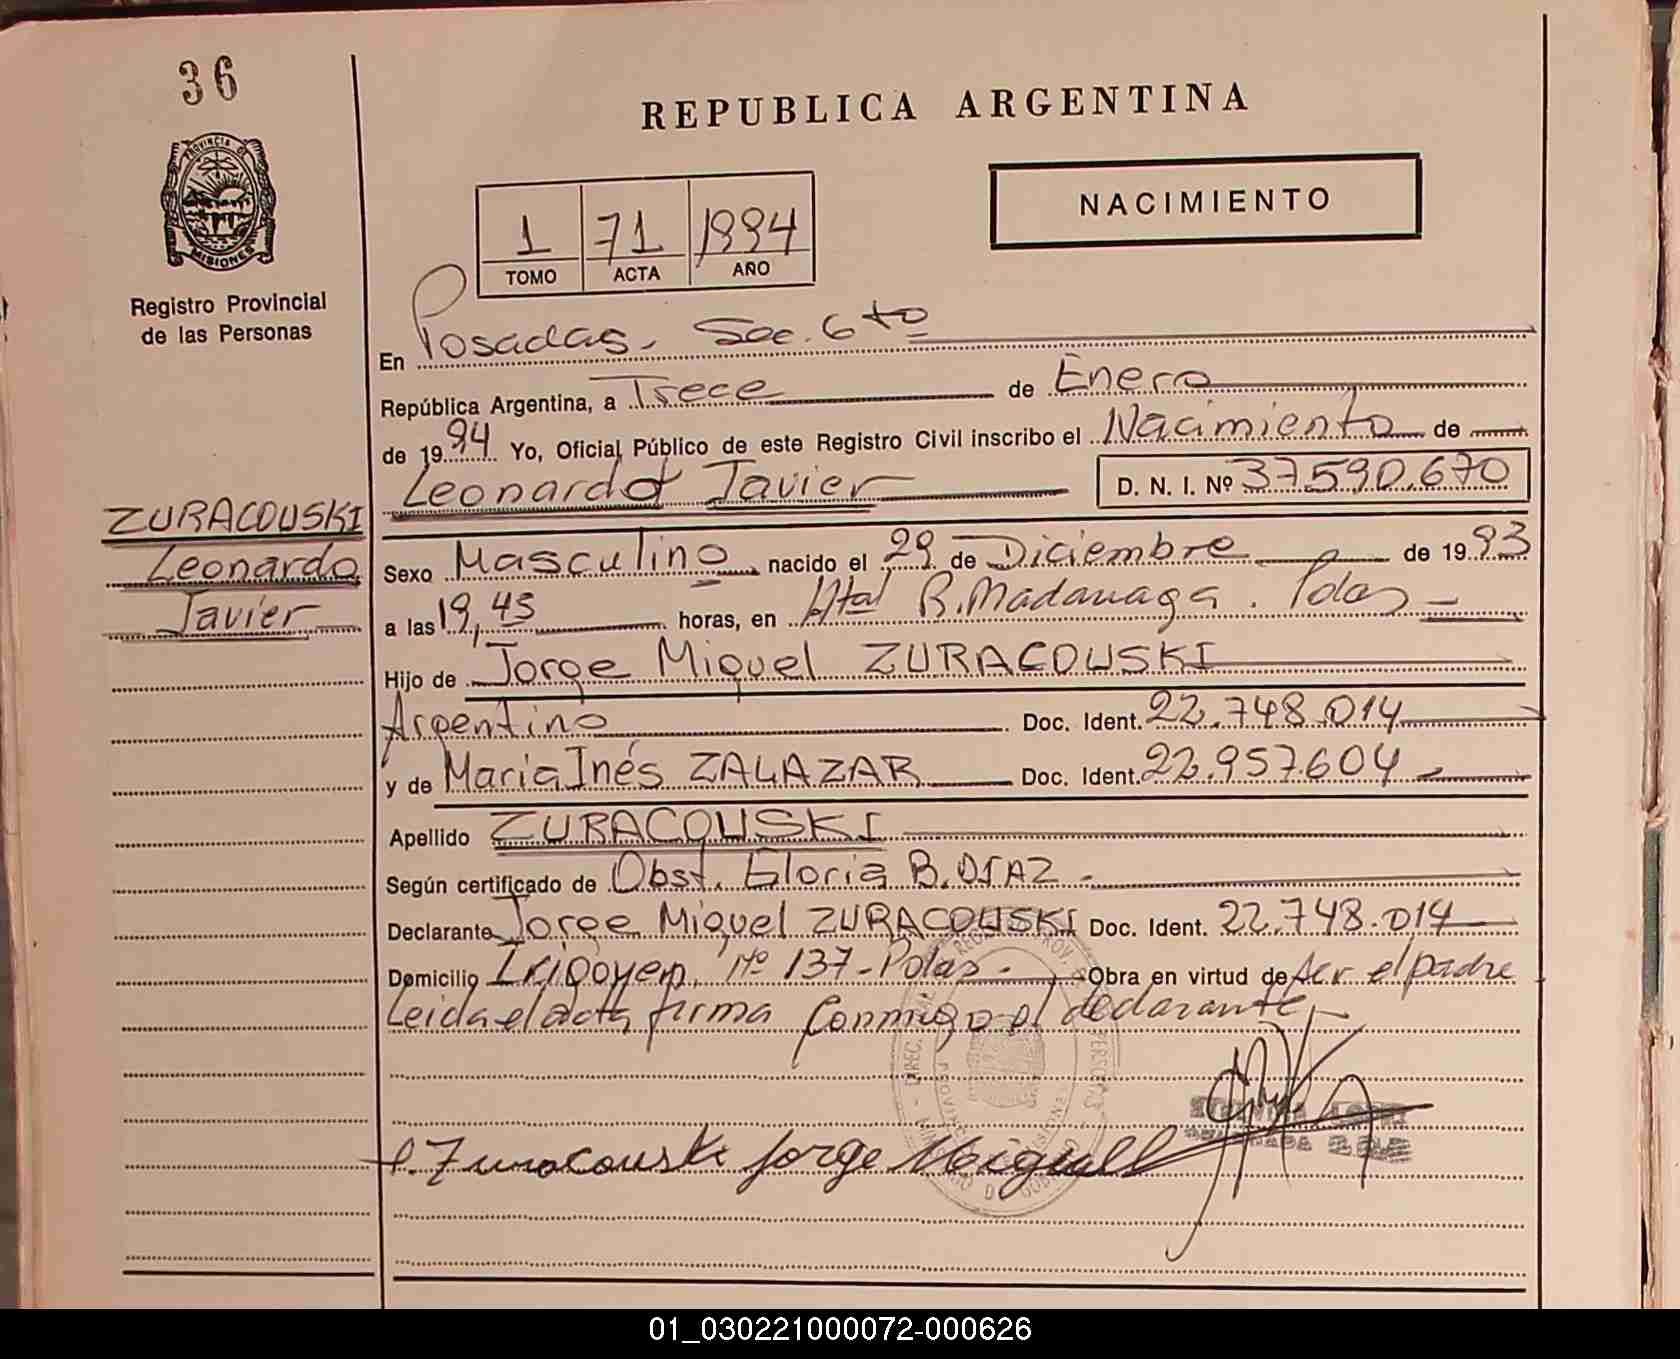 36
REPUBLICA ARGENTINA
PROVINCIA DE
MISIONES
NACIMIENTO
1 71 1994
TOMO ACTA AÑO
Registro Provincial
de las Personas
En Posadas. Sec. 6to
República Argentina, a Trece de Enero
de 1994 Yo, Oficial Público de este Registro Civil inscribo el Nacimiento de
Leonardo Javier D. N. I. Nº 37.590.670
ZURACOUSKI
Leonardo
Javier
Sexo Masculino nacido el 29 de Diciembre de 1993
a las 19,45 horas, en Htal R. Madariaga. Pdas
Hijo de Jorge Miguel ZURACOUSKI
Argentino Doc. Ident. 22.748.014
y de Maria Inés ZALAZAR Doc. Ident. 22.957.604
Apellido ZURACOUSKI
Según certificado de Obst. Gloria B. DIAZ
Declarante Jorge Miguel ZURACOUSKI Doc. Ident. 22.748.014
Domicilio Irigoyen, Nº 137 - Pdas. Obra en virtud de ser el padre
Leida el acta, firma conmigo el declarante
Zuracouski Jorge Miguel
01_030221000072-000626